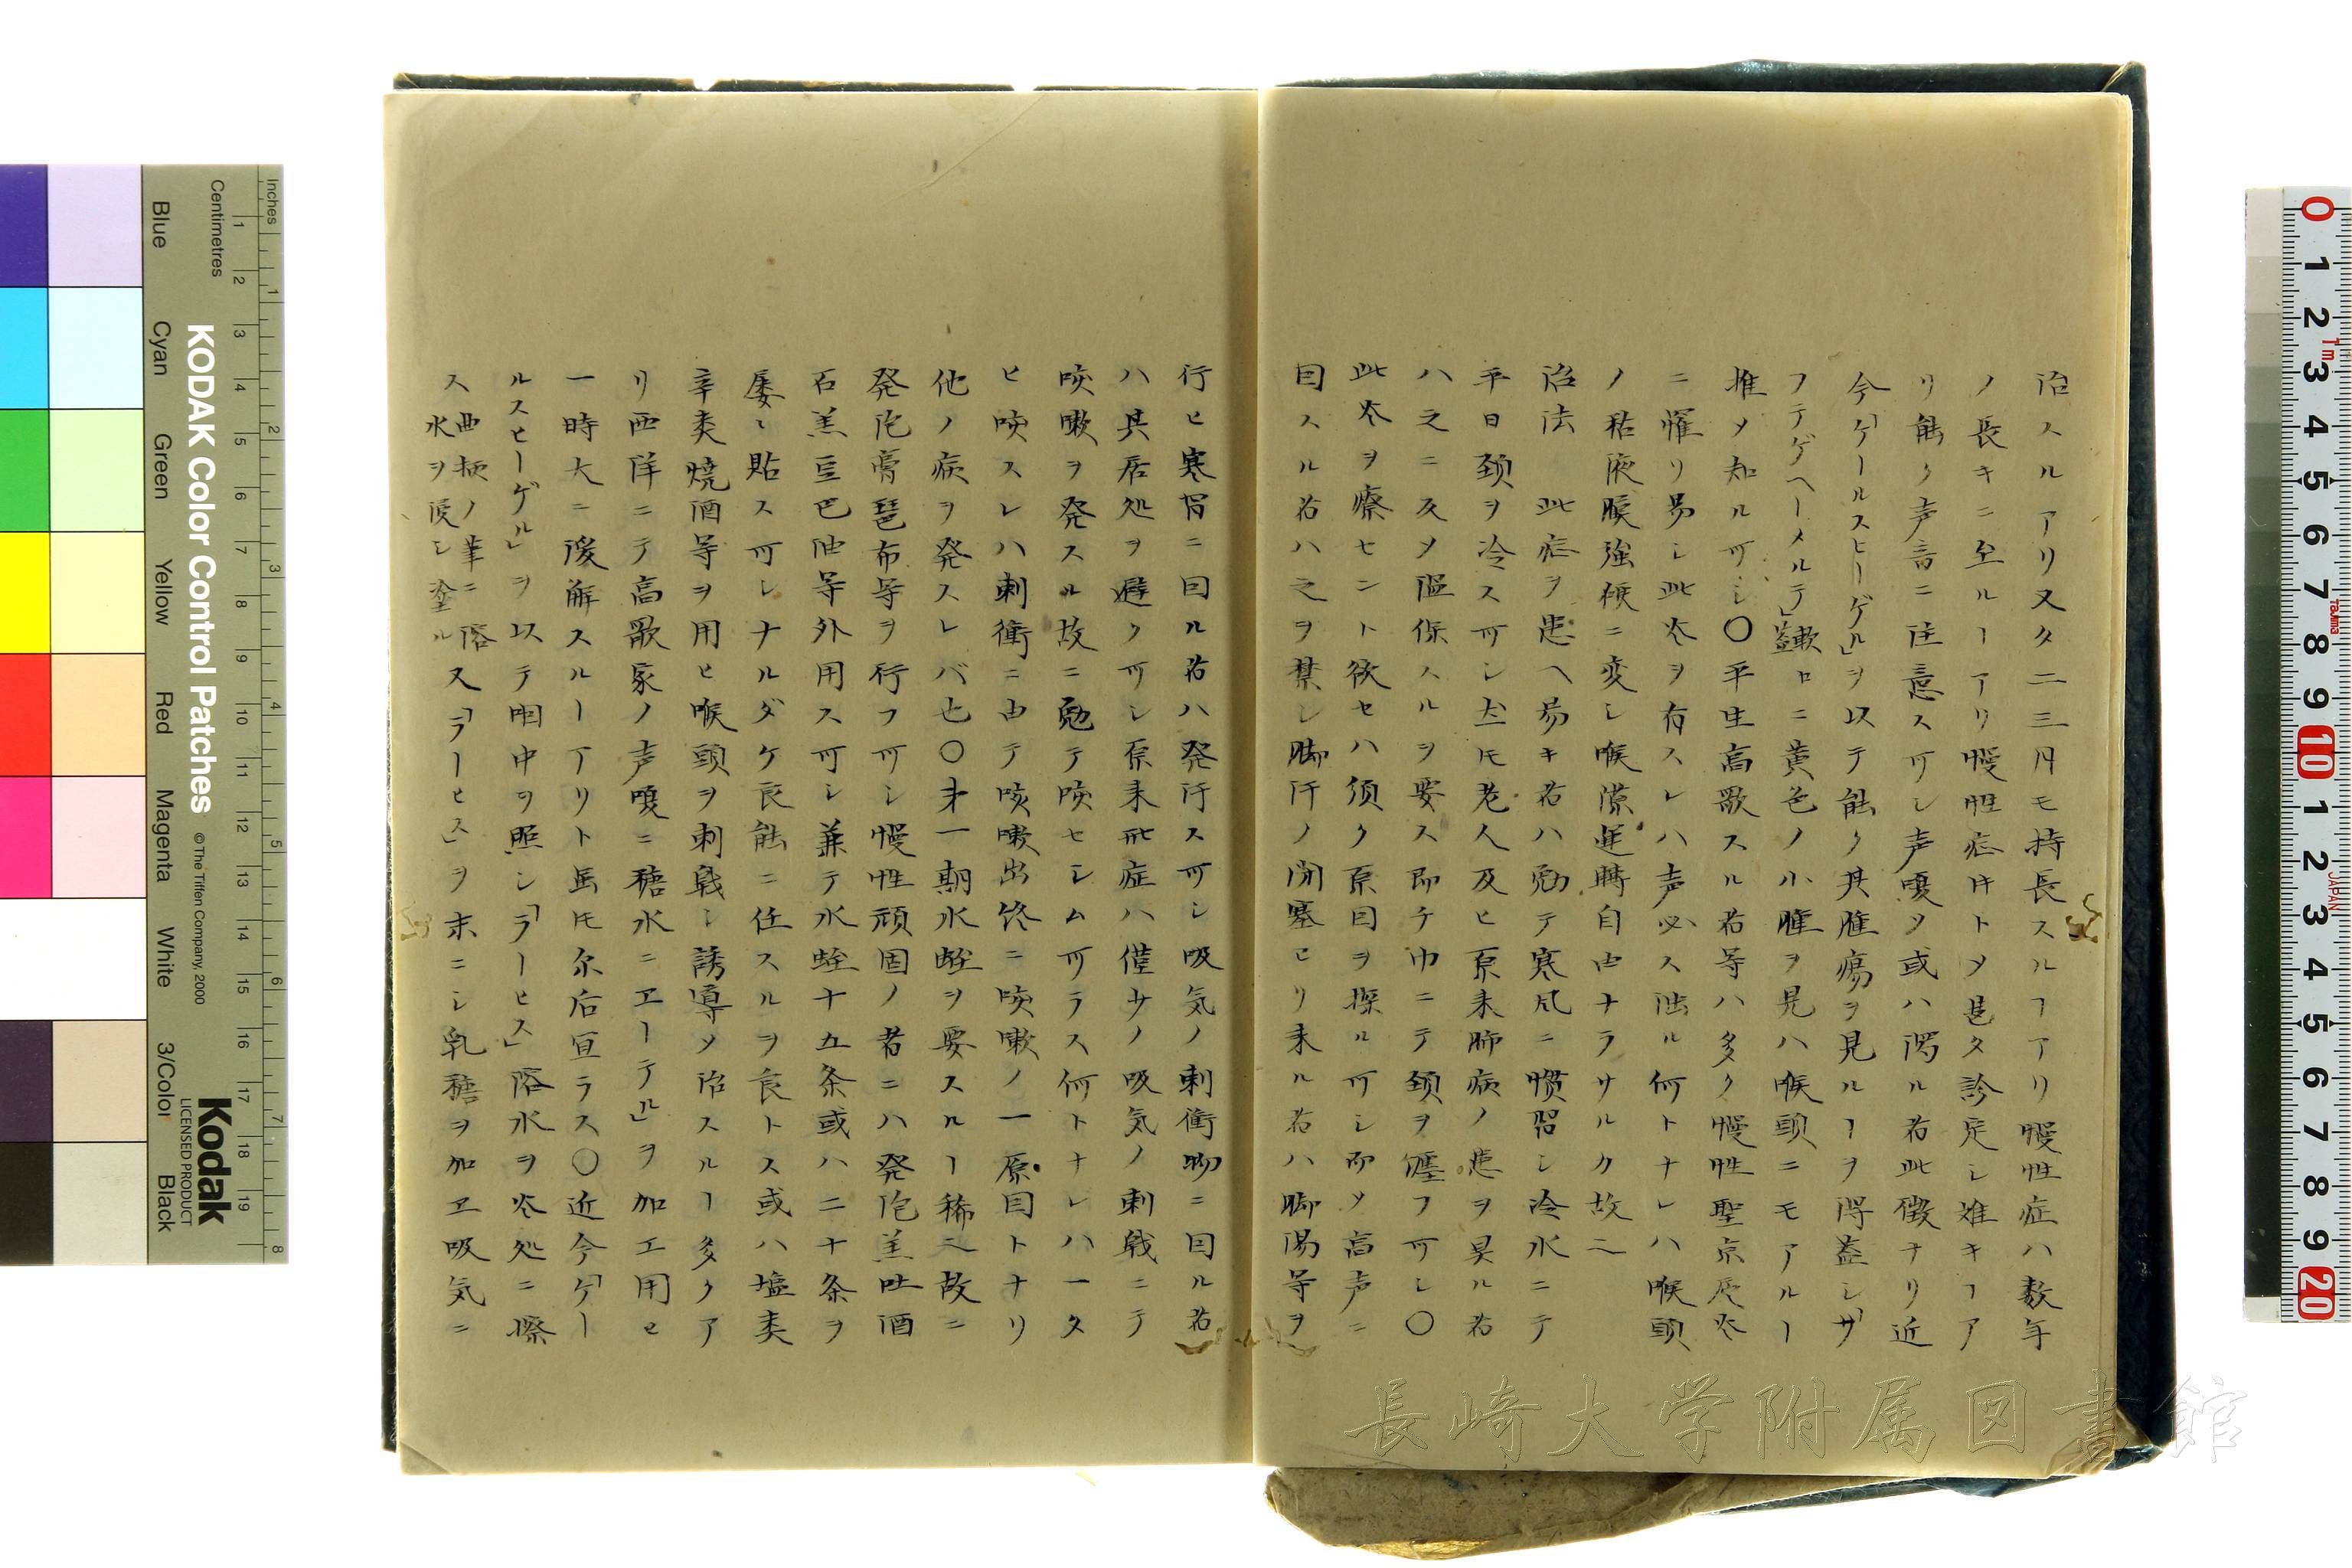 治スルアリ又タ二三月モ持長スルヿアリ慢性症ハ数年
ノ長キニ至ルヿアリ慢性症ヰトメ甚タ診定シ難キヿア
リ能ク声音ニ注意ス可シ声嗄メ或ハ濁ル者此徴ナリ近
今「ケールスヒーゲル」ヲ以テ能ク其腫瘍ヲ見ルヿヲ得蓋シ「サ
フテゲヘーメルテ」軟口蓋ニ黄色ノ小腫ヲ見ハ喉頭ニモアルヿ
推メ知ル可シ〇平生高歌スル者等ハ多ク慢性聖京偍炎
ニ罹リ易シ此炎ヲ有スレハ声必ス濁ル何トナレハ喉頭
ノ粘液膜強硬ニ変シ喉隙運轉自由ナラサルカ故ニ
治法 此症ヲ患ヘ易キ者ハ勉テ寒風ニ慣習シ冷水ニテ
平日頚ヲ冷ス可シ尤𪜈老人及ヒ原来肺病ノ患ヲ具ル者
ハ之ニ反メ温保スルヲ要ス即チ巾ニテ頚ヲ纏フ可シ〇
此炎ヲ療セント欲セハ須ク原因ヲ探ル可シ而メ高声ニ
因スル者ハ之ヲ禁シ脚汗ノ閉塞ヒリ来ル者ハ脚湯等ヲ
行ヒ寒冒ニ因ル者ハ発汗ス可シ吸気ノ刺衝物ニ因ル者
ハ其居処ヲ避ク可シ原来此症ハ僅少ノ吸気ノ刺戟ニテ
咳嗽ヲ発スル故ニ勉テ咳セシム可ラス何トナレハ一タ
ヒ咳スレハ刺衝ニ由テ咳嗽出終ニ咳嗽ノ一原因トナリ
他ノ病ヲ発スレバ也〇才一期水蛭ヲ要スルヿ稀ニ故ニ
発泡膏琶布等ヲ行フ可シ慢性頑固ノ者ニハ発泡羔吐酒
石羔豆巴油等外用ス可シ兼テ水蛭十五条或ハ二十条ヲ
屡〻貼ス可シナルダケ良能ニ任スルヲ良トス或ハ塩類
辛类焼酒等ヲ用ヒ喉頭ヲ刺戟シ誘導メ治スルヿ多クア
リ西洋ニテ高歌家ノ声嗄ニ糖水ニエーテル」ヲ加エ用ヒ
一時大ニ緩解スルヿアリト虽𪜈尓后宜ラス〇近今「ケー
ルスヒーゲル」ヲ以テ咽中ヲ照シ「ラーヒス」溶水ヲ炎処ニ擦
ス西柄ノ筆ニ溶水ヲ浸シ塗ル又「ラーヒス」ヲ末ニシ乳糖ヲ加ヱ吸気ニ
KODAK Color Control Patches
© The Tiffen Company, 2000
Kodak
LICENSED PRODUCT
Inches
Centimetres
Blue Cyan Green Yellow Red Magenta White 3/Color Black
長崎大学附属図書館